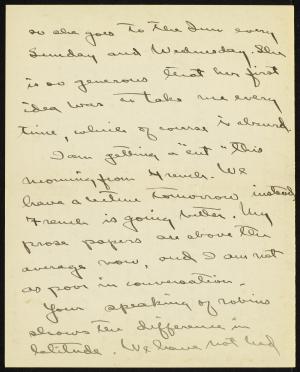 so she goes to the Inn every
Sunday and Wednesday. She
is so generous that her first
idea was to take me every
time, which of course is absurd.
I am getting a "cut" this
morning from French. We
have a lecture tomorrow instead.
French is going better. My
prose papers are above the
average now, and I am not
as poor in conversation.
Your speaking of robins
shows the difference in
latitude. We have not had